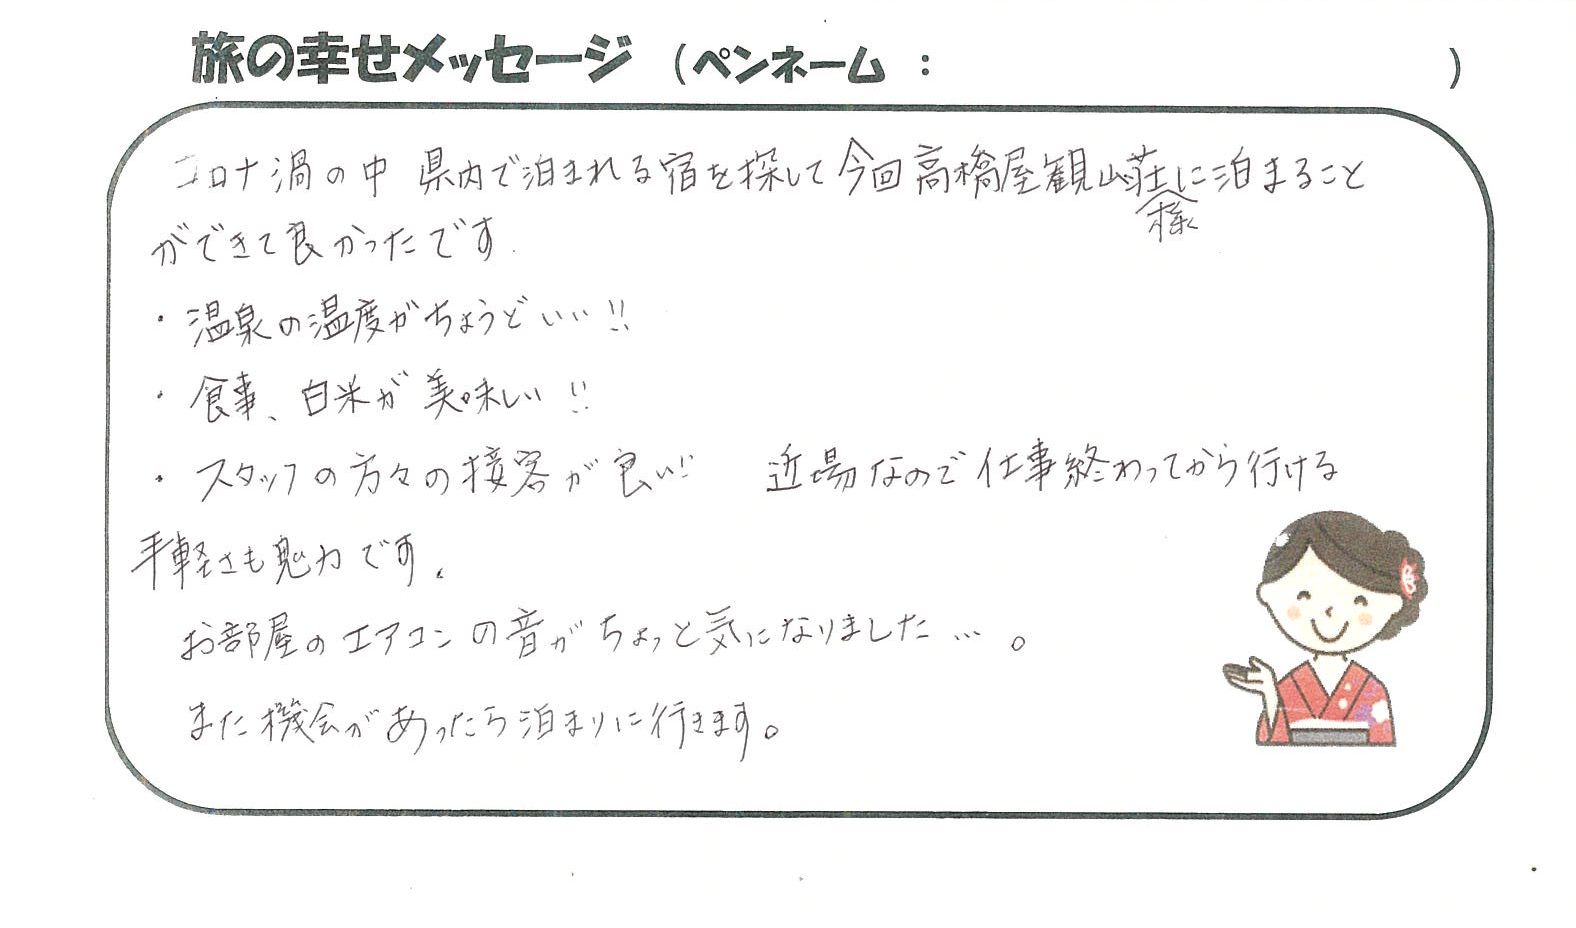 旅の幸せメッセージ (ペンネーム : )
コロナ渦の中 県内で泊まれる宿を探して今回高橋屋観山荘様に泊まること
ができて良かったです.
・温泉の温度がちょうどいい!!
・食事、白米が美味しい!!
・スタッフの方々の接客が良い!! 近場なので仕事終わってから行ける
手軽さも魅力です.
お部屋のエアコンの音がちょっと気になりました…。
また機会があったら泊まりに行きます。